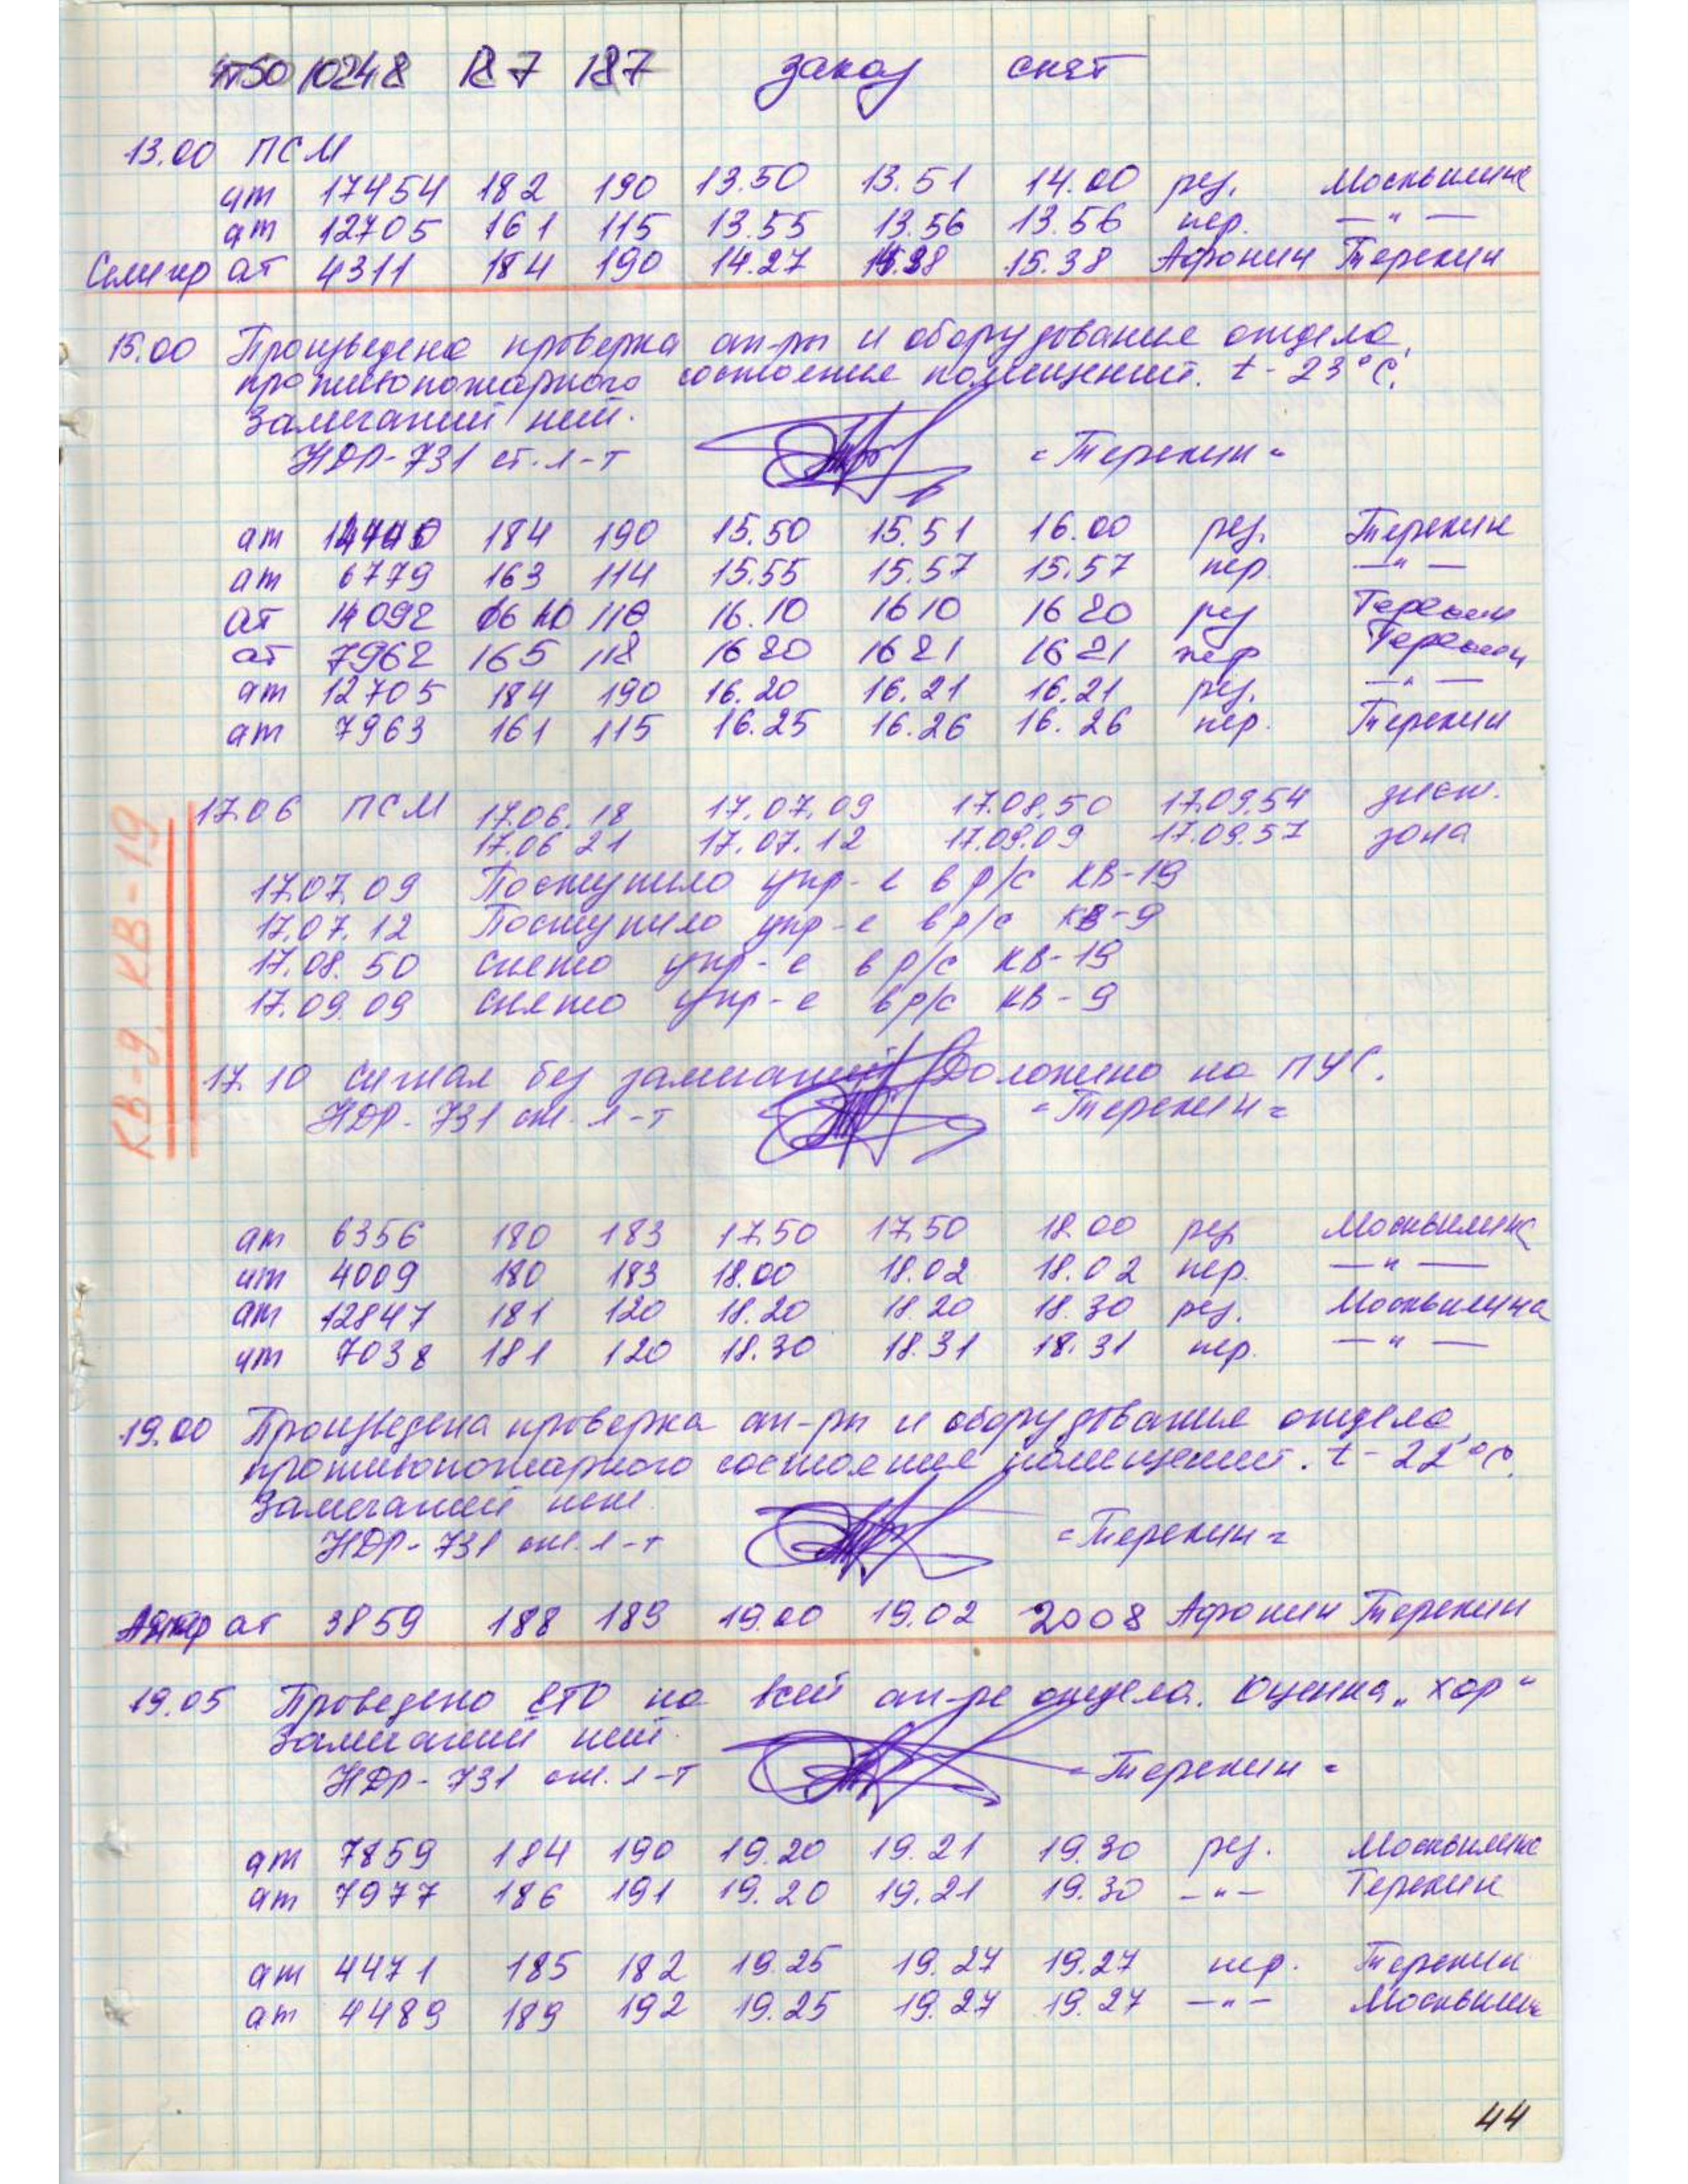 10248 187 187 заказ снят
13.00 ПСМ
ат 17454 182 190 13.50 13.51 14.00 рез. Москвилина
ат 12705 161 115 13.55 13.56 13.56 пер. —"—
ат 4311 184 190 14.27 15.38 Афонин Терехин
15.00 Произведена проверка ап-ры и оборудования отдела,
противопожарного состояния помещений. t - 23°C.
Замечаний нет.
НДР-731 ст. л-т =Терехин=
ат 184 190 15.50 15.51 16.00 рез. Терехин
ат 6779 163 114 15.55 15.57 15.57 пер. —"—
ат 14092 16.10 16 10 16 20 рез Терехин
ат 7962 165 118 16 20 16 21 16 21 пер Терехин
ат 12705 184 190 16.20 16.21 16.21 рез. —"—
ат 7963 161 115 16.25 16.26 16.26 пер. Терехин
17.06 ПСМ 17.06.18 17.07.09 17.08.50 17.09.54 диск.
17.06 21 17.07.12 17.09.09 17.09.57 зона
17.07.09 Поступило упр-е в р/с КВ-19
17.07.12 Поступило упр-е в р/с КВ-9
17.08.50 снято упр-е в р/с КВ-19
17.09.09 снято упр-е в р/с КВ-9
КВ-9 КВ-19
17.10 Сигнал без замечаний Доложено на ПУС.
НДР-731 ст. л-т =Терехин=
ат 6356 180 183 17.50 17.50 18.00 рез Москвилина
ат 4009 180 183 18.00 18.02 18.02 пер. —"—
ат 12847 181 120 18.20 18.20 18.30 рез. Москвилина
ат 7038 181 120 18.30 18.31 18.31 пер. —"—
19.00 Произведена проверка ап-ры и оборудования отдела,
противопожарного состояния помещений. t - 22°C.
Замечаний нет.
НДР-731 ст. л-т =Терехин=
ат 3859 188 189 19.00 19.02 2008 Афонин Терехин
19.05 Проведено ЕТО на всей ап-ре отдела. Оценка „хор"
Замечаний нет.
НДР-731 ст. л-т =Терехин=
ат 7859 184 190 19.20 19.21 19.30 рез. Москвилина
ат 7977 186 191 19.20 19.21 19.30 —"— Терехин
ат 4471 185 182 19.25 19.27 19.27 пер. Терехин
ат 4489 189 192 19.25 19.27 19.27 —"— Москвилина
44